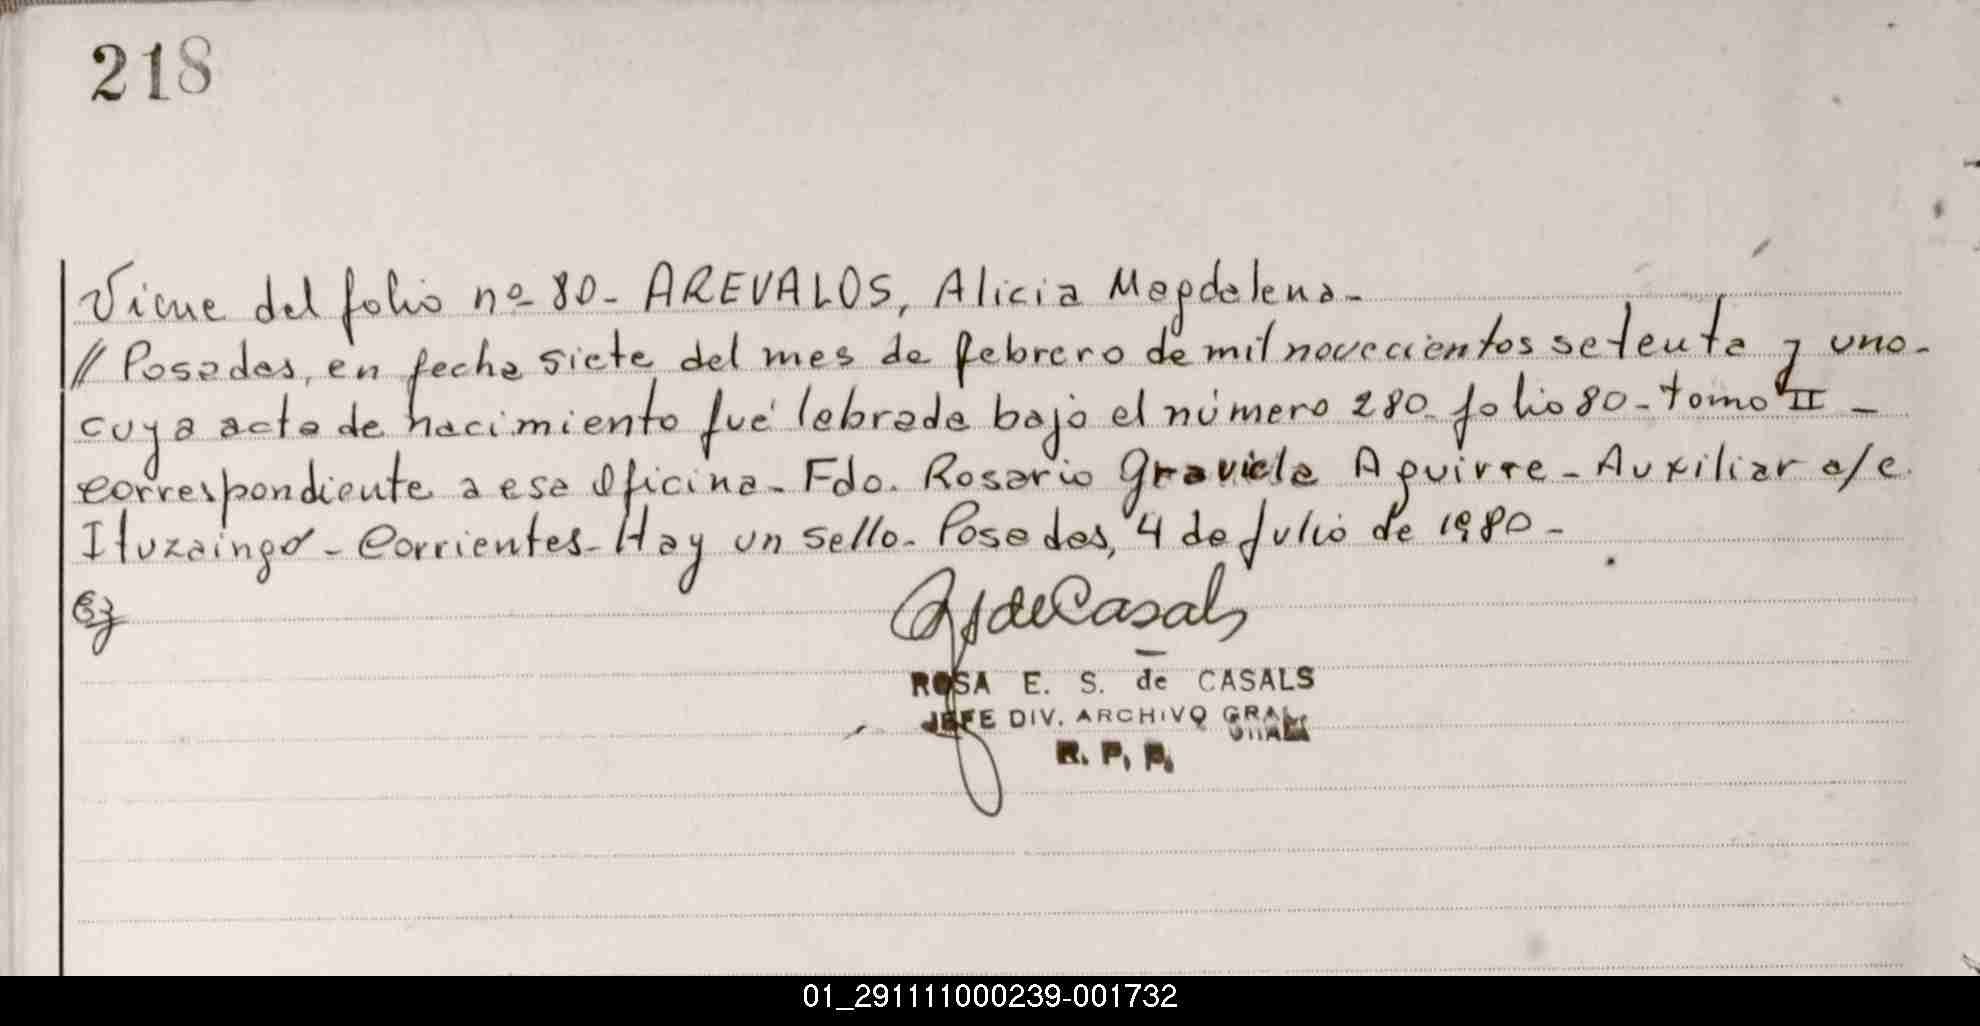 218
Viene del folio nº 80- AREVALOS, Alicia Magdalena-
// Posadas, en fecha siete del mes de febrero de mil novecientos setenta y uno-
cuya acta de nacimiento fué labrada bajo el número 280- folio 80- tomo II -
correspondiente a esa Oficina- Fdo. Rosario Graviela Aguirre - Auxiliar a/c.
Ituzaingó - Corrientes- Hay un sello- Posadas, 4 de Julio de 1980-
de Casals
ROSA E. S. de CASALS
JEFE DIV. ARCHIVO GRAL
R. P. P.
01_291111000239-001732